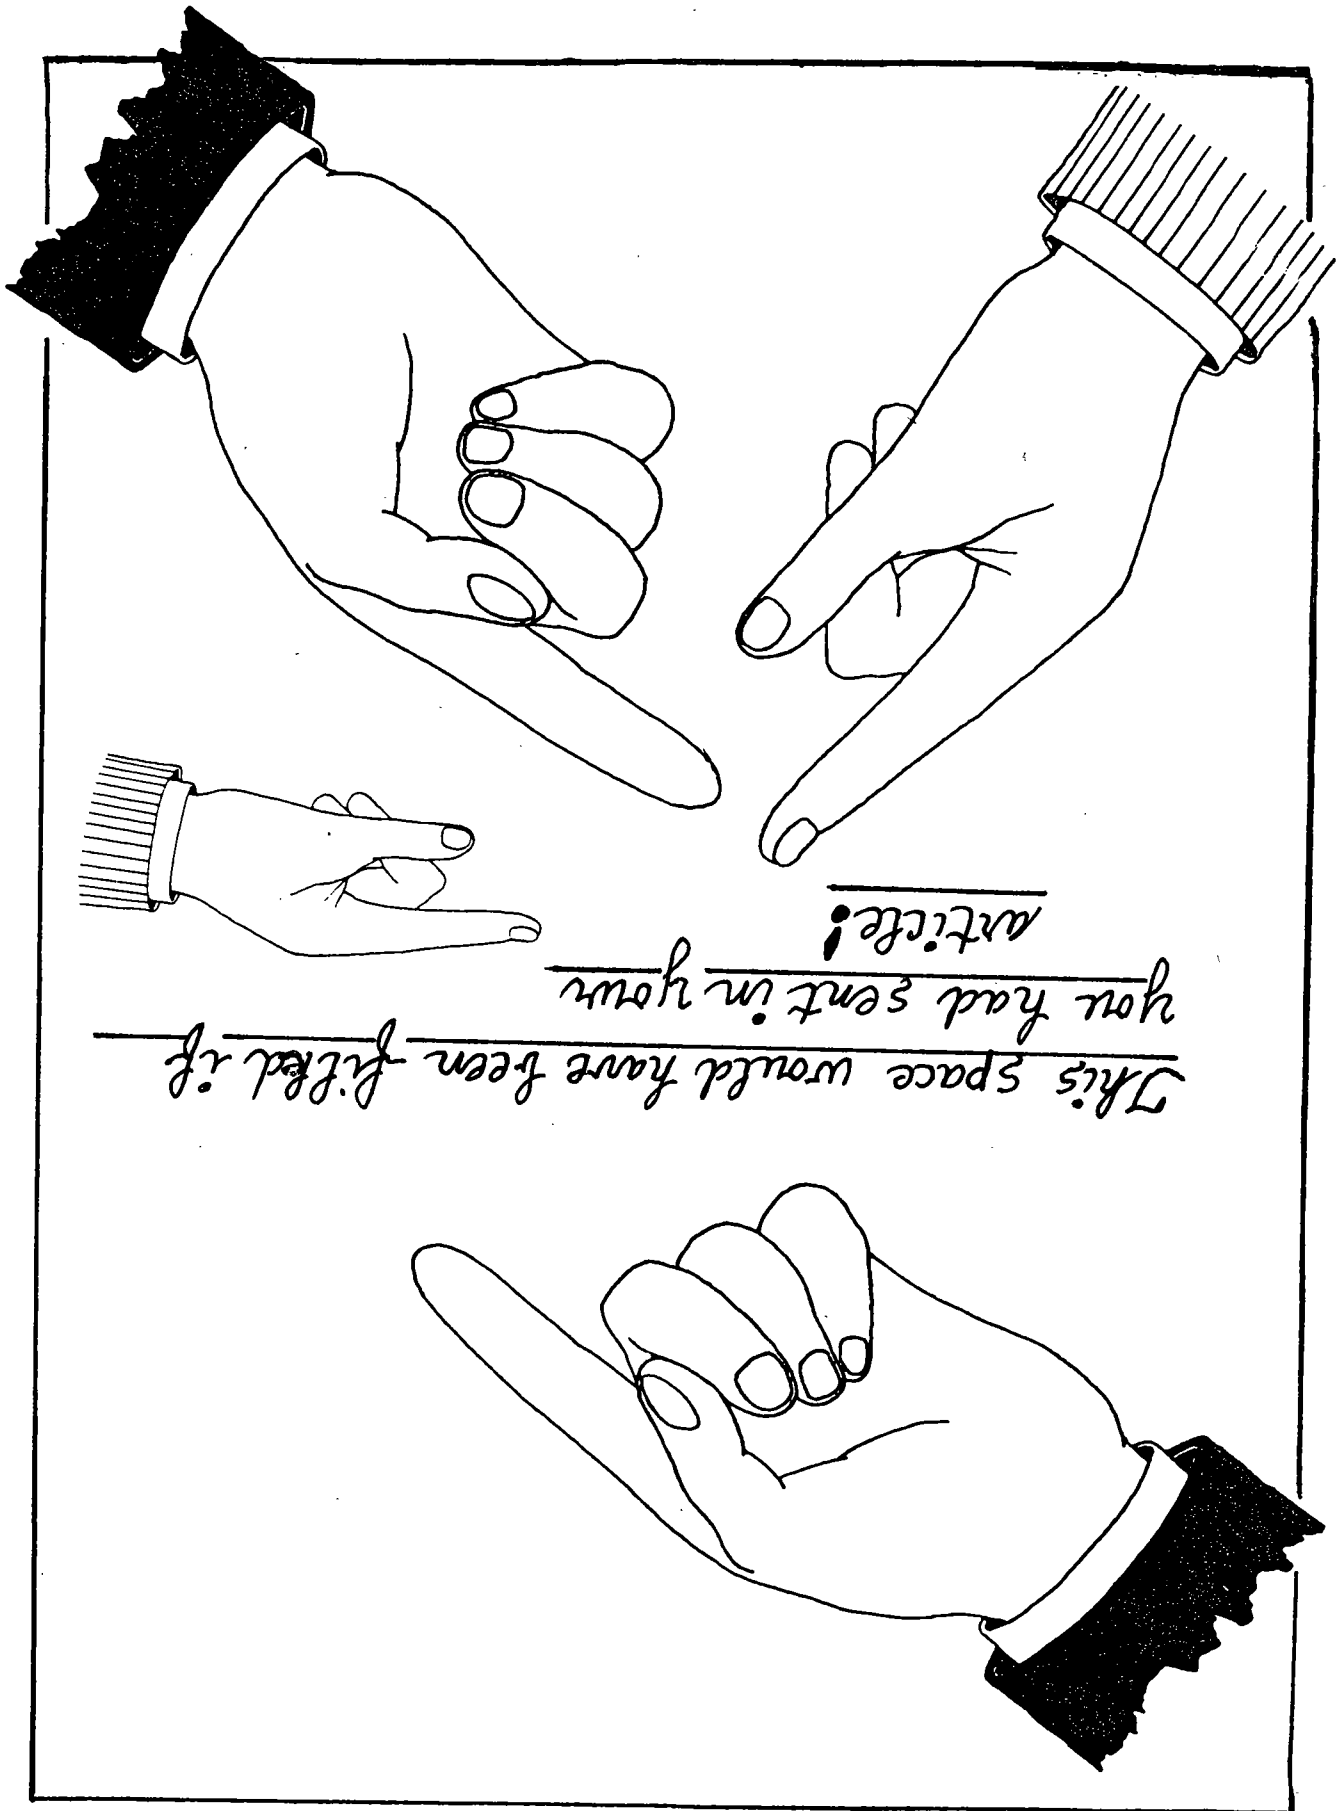 This space would have been filled if
you had sent in your
article!